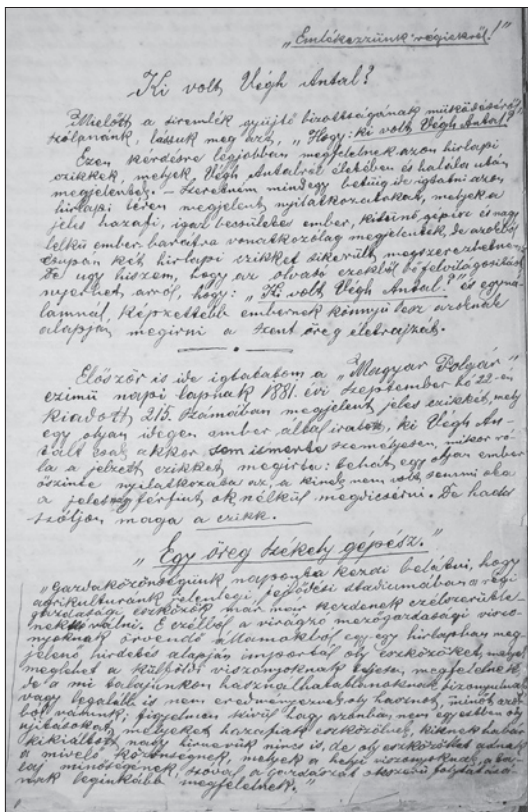 „Emlékezzünk régiekről!"
Ki volt Végh Antal?
Mielőtt a siremlék gyüjtő bizottságának működéséről
szólnánk, lássuk meg azt, „Hogy: ki volt Végh Antal?
Ezen kérdésre legjobban megfelelnek azon hirlapi
czikkek, melyek, Végh Antalról életében és halála után
megjelentek. – Szeretném mindegy betüig ide igtatni azon
hirlapi téren megjelent nyilatkozatokat, melyek a
jeles hazafi, igaz becsületes ember, kitünő gépész és nagy
lelkü ember barátra vonatkozólag megjelentek, de azokból
csupán két hirlapi czikket sikerült megszereznem.
De ugy hiszem, hogy az olvasó ezekből is felvilágositást
nyerhet arról, hogy: „Ki volt Végh Antal?" és
lamnál, képzettebb embernek könnyü lesz azoknak
alapján megirni a szent öreg életrajzát.
Először is ide igtatatom a „Magyar Polgár"
czimü napi lapnak 1881. évi Szeptember hó 22-én
kiadott 215 számában megjelent jeles czikkét, mely
egy olyan idegen ember által iratott, ki Végh An-
talt csak akkor sem ismerte személyesen, mikor ró-
la a jelzett czikket megirta: tehát egy olyan ember
őszinte nyilatkozata az, a kinek nem volt semmi oka
a jeles férfiut ok nélkül megdicsérni. De hadd
szóljon maga a czikk.
„Egy öreg székely gépész."
„Gazdaközönségünk naponta kezdi belátni, hogy
agrikulturánk jelenlegi fejlődési stadiumában a régi
gazdasági eszközök már már kezdenek czélszerütle-
nekké válni. E czélból a virágzó mezőgazdasági viszo-
nyoknak örvendő államokból egy-egy hirlapban meg
jelenő hirdetés alapján importál oly eszközöket, melyek
meglehet a külföldi viszonyoknak teljesen megfelelnek,
de a mi talajunkon használhatatlanoknak bizonyulnak
vagy legalább is nem eredményeznek oly hasznot, minőt azok-
ból várunk; figyelmen kivül hagy azonban nem egyestben oly
ujitásokat, melyeket hazafiak eszközölnek, kiknek habár
kikiáltott nagy hirnevük nincs is, de oly eszközöket adnak
a mivelő közönségnek, melyek a helyi viszonyoknak, a ta-
laj minőségének, szóval a gazdászat okszerü folytatásá-
nak leginkább megfelelnek."